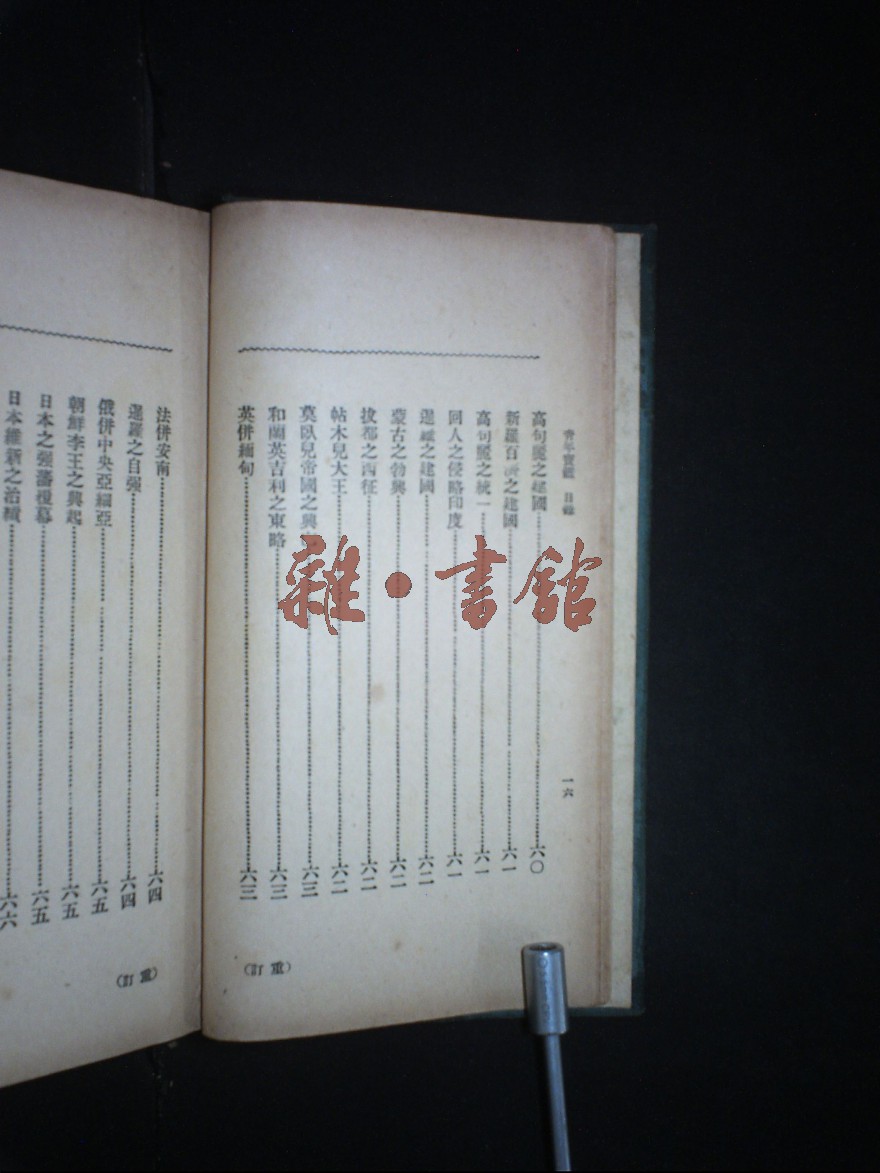 青年寶鑑 目錄 一六
高句麗之建國 六〇
新羅百濟之建國 六一
高句麗之統一 六一
回人之侵略印度 六一
暹羅之建國 六二
蒙古之勃興 六二
拔都之西征 六二
帖木兒大王 六二
莫臥兒帝國之興 六三
和蘭英吉利之東略 六三
英併緬甸 六三
(重訂)
法併安南 六四
暹羅之自強 六四
俄併中央亞細亞 六五
朝鮮李王之興起 六五
日本之強藩覆幕 六五
日本維新之治績 六六
(重訂)
雜·書館